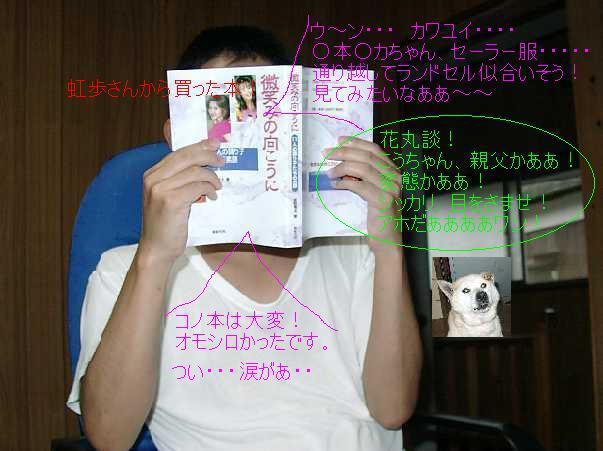 ウ～ン・・・ カワユイ・・・・
〇本〇カちゃん、セーラー服・・・・・
通り越してランドセル似合いそう！
見てみたいなああ～～
虹歩さんから買った本
微笑みの向こうに
微笑みの向こうに
花丸談！
こうちゃん、親父かああ！
変態かああ！
シッカリ、目をさませ！
アホだああああワン！
コノ本は大変！
オモシロかったです。
つい・・・涙があ・・